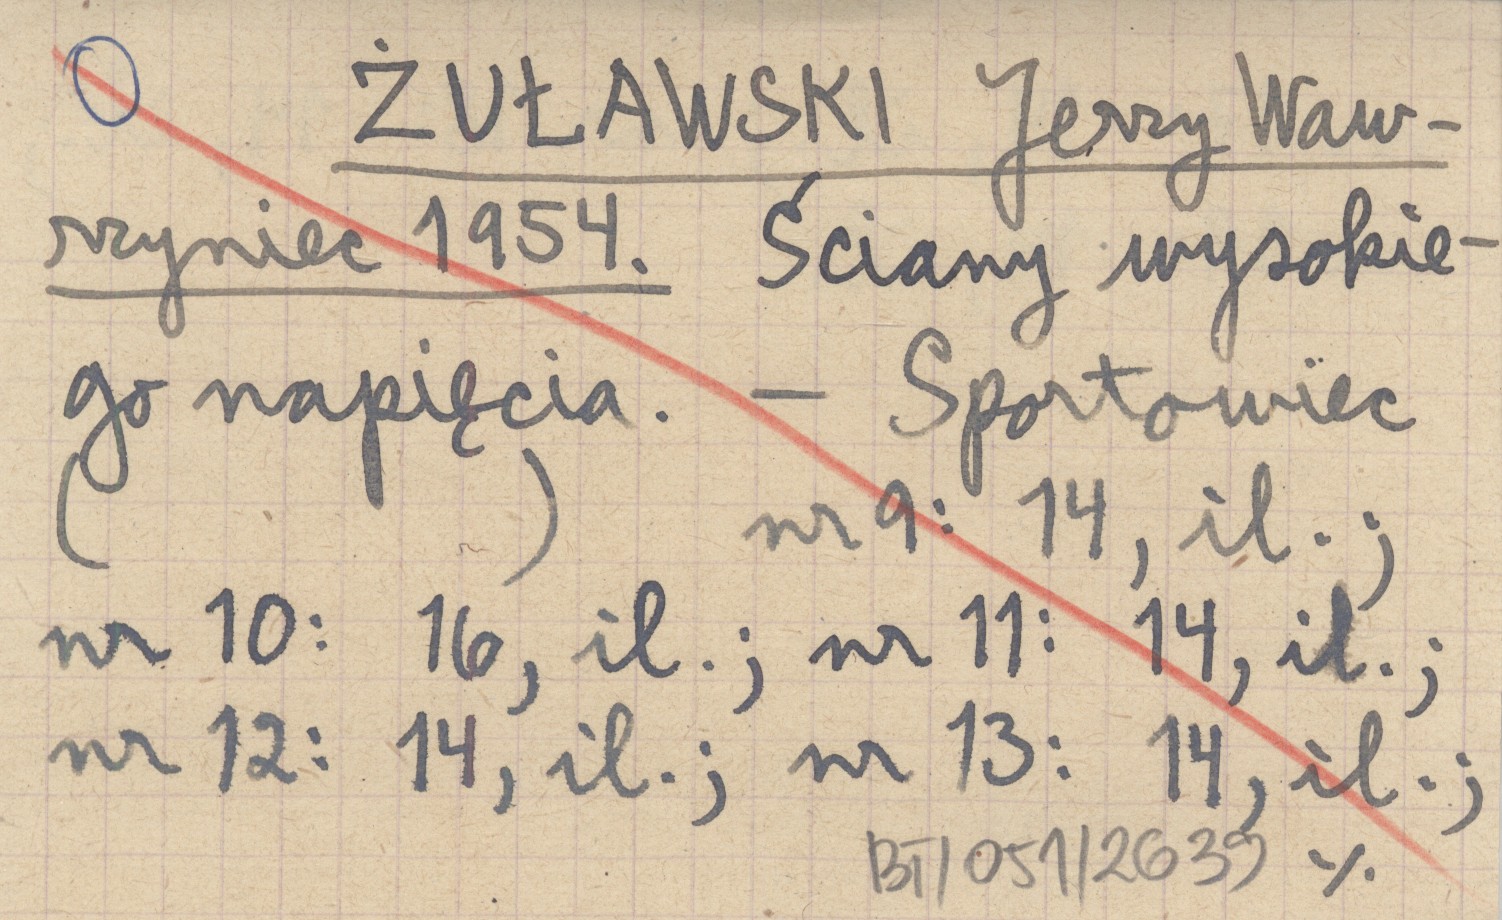 ŻUŁAWSKI Jerzy Waw-
rzyniec 1954. Ściany wysokie-
go napięcia. — Sportowiec
(          ) nr 9: 14, il.;
nr 10: 16, il.; nr 11: 14, il.;
nr 12: 14, il.; nr 13: 14, il.;
BT/051/2639 ·/.